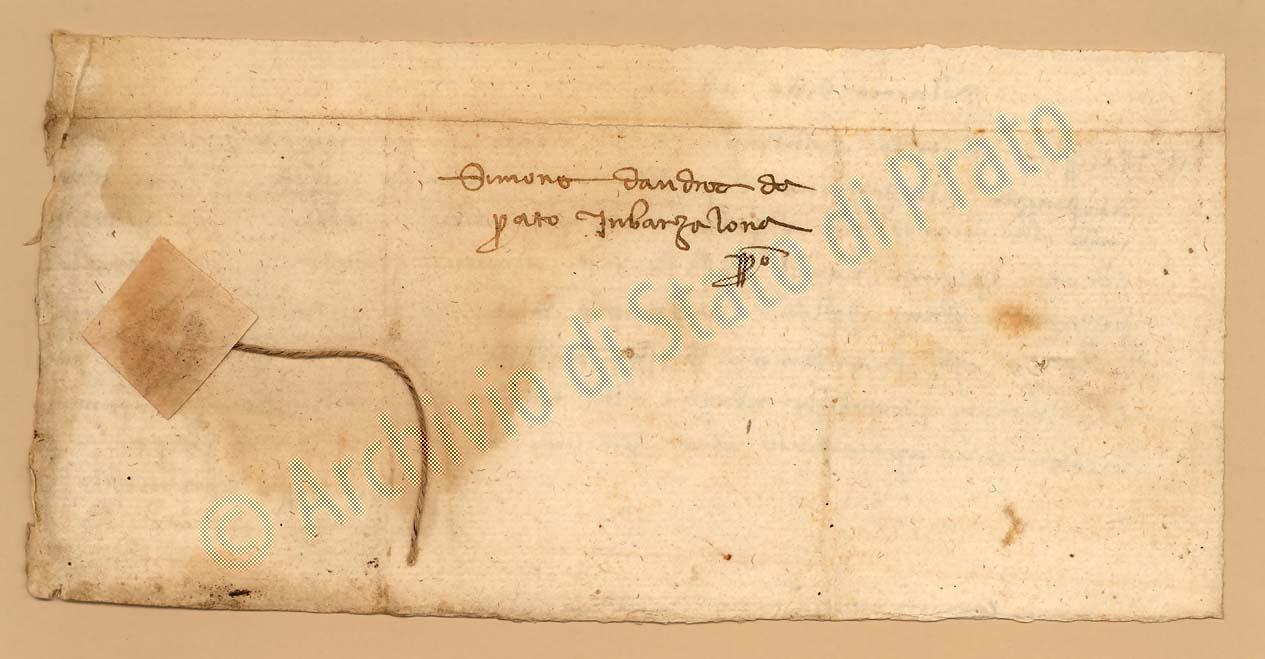 Simone dandrea de
prato Inbarzalona
ppo
© Archivio di Stato di Prato